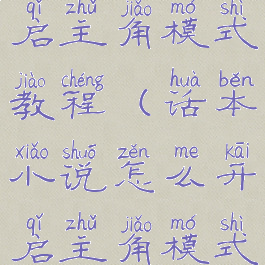 qǐ zhǔ jiǎo mó shì
启主角模式
jiào chéng huà běn
教程（话本
xiǎo shuō zěn me kāi
小说怎么开
qǐ zhǔ jiǎo mó shì
启主角模式